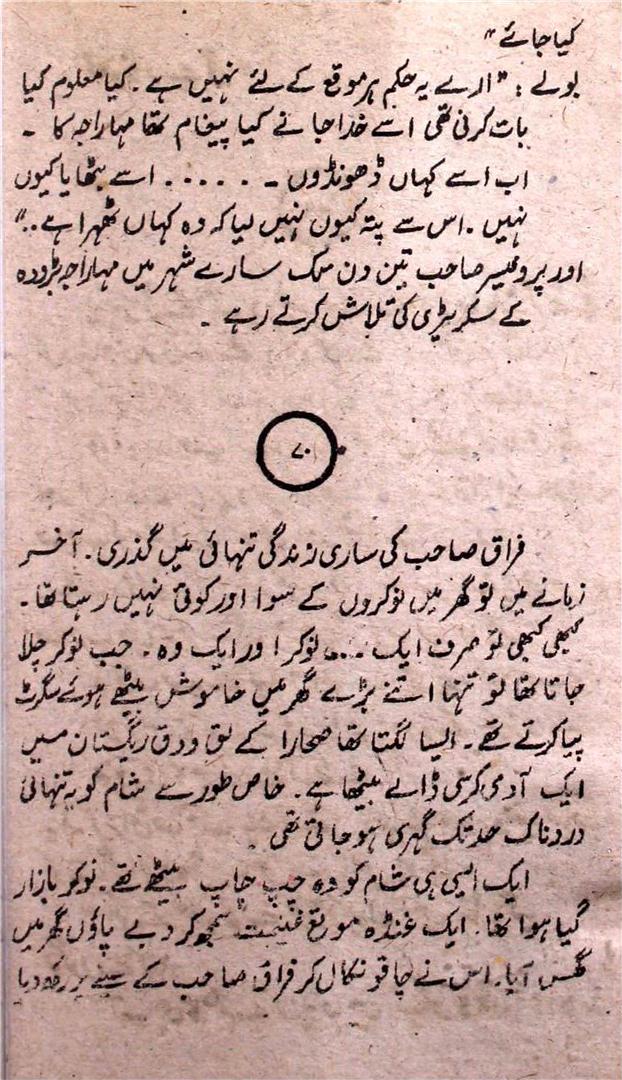 کیا جائے"
بولے: "ارے یہ حکم ہر موقع کے لئے نہیں ہے۔ کیا معلوم کیا
بات کرنی تھی اسے خدا جانے کیا پیغام تھا مہاراجہ کا ۔
اب اسے کہاں ڈھونڈوں ۔ ۔۔۔۔۔ اسے بٹھایا کیوں
نہیں ۔ اس سے پتہ کیوں نہیں لیا کہ وہ کہاں ٹھہرا ہے ۔۔"
اور پروفیسر صاحب تین دن تک سارے شہر میں مہاراجہ بڑودہ
کے سکریٹری کی تلاش کرتے رہے ۔
۷۰
فراق صاحب کی ساری زندگی تنہائی میں گذری ۔ آخر
زمانے میں تو گھر میں نوکروں کے سوا اور کوئی نہیں رہتا تھا ۔
کبھی کبھی تو صرف ایک ۔۔۔ نوکر اور ایک وہ ۔ جب نوکر چلا
جاتا تھا تو تنہا اتنے بڑے گھر میں خاموش بیٹھے ہوئے سگرٹ
پیا کرتے تھے ۔ ایسا لگتا تھا صحارا کے لق و دق ریگستان میں
ایک آدمی کرسی ڈالے بیٹھا ہے ۔ خاص طور سے شام کو یہ تنہائی
دردناک حد تک گہری ہو جاتی تھی ۔
ایک ایسی ہی شام کو وہ چپ چاپ بیٹھے تھے ۔ نوکر بازار
گیا ہوا تھا ۔ ایک غنڈہ موقع غنیمت سمجھ کر دبے پاؤں گھر میں
گھس آیا ۔ اس نے چاقو نکال کر فراق صاحب کے سینے پر رکھ دیا